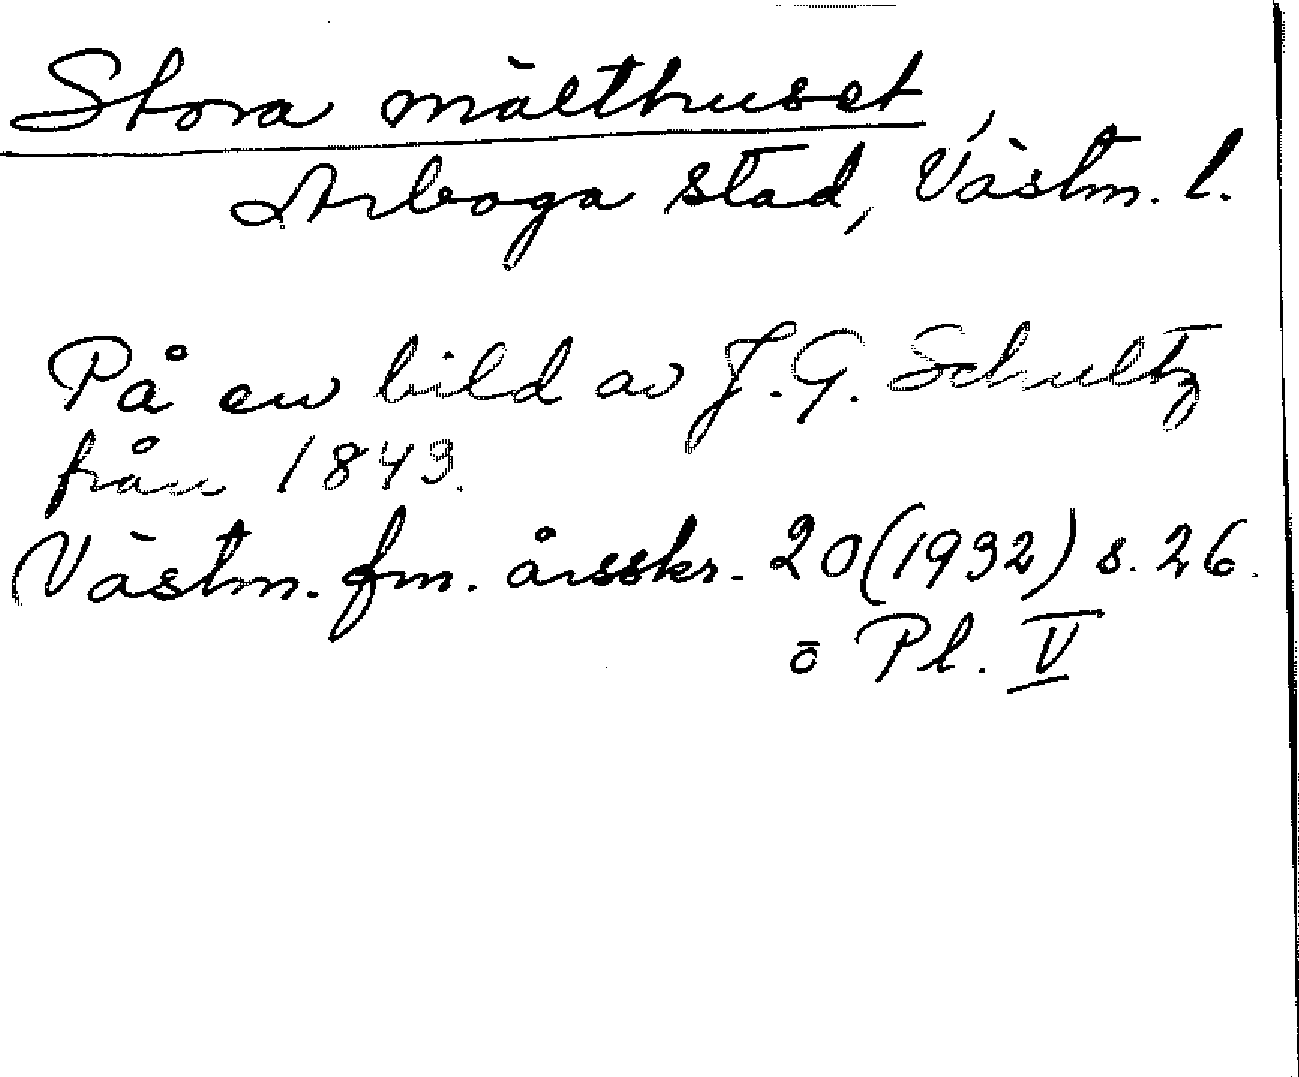 Stora mälthuset,
Arboga stad, Västm. l.
På en bild av J. G. Schultz
från 1843.
Västm. fm. årsskr. 20 (1932) s. 26.
o Pl. V